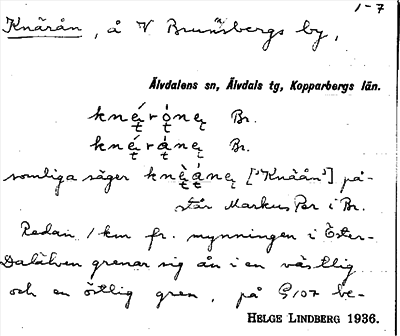 1-7
Knärån, å V Brunnsbergs by,
Älvdalens sn, Älvdals tg, Kopparbergs län.
Br.
Br.
somliga säger ["Knäån"] på-
står Markus Per i Br.
Redan 1 km fr. mynningen i Öster-
Dalälven grenar sig ån i en västlig
och en östlig gren, på G107 be-
HELGE LINDBERG 1936.